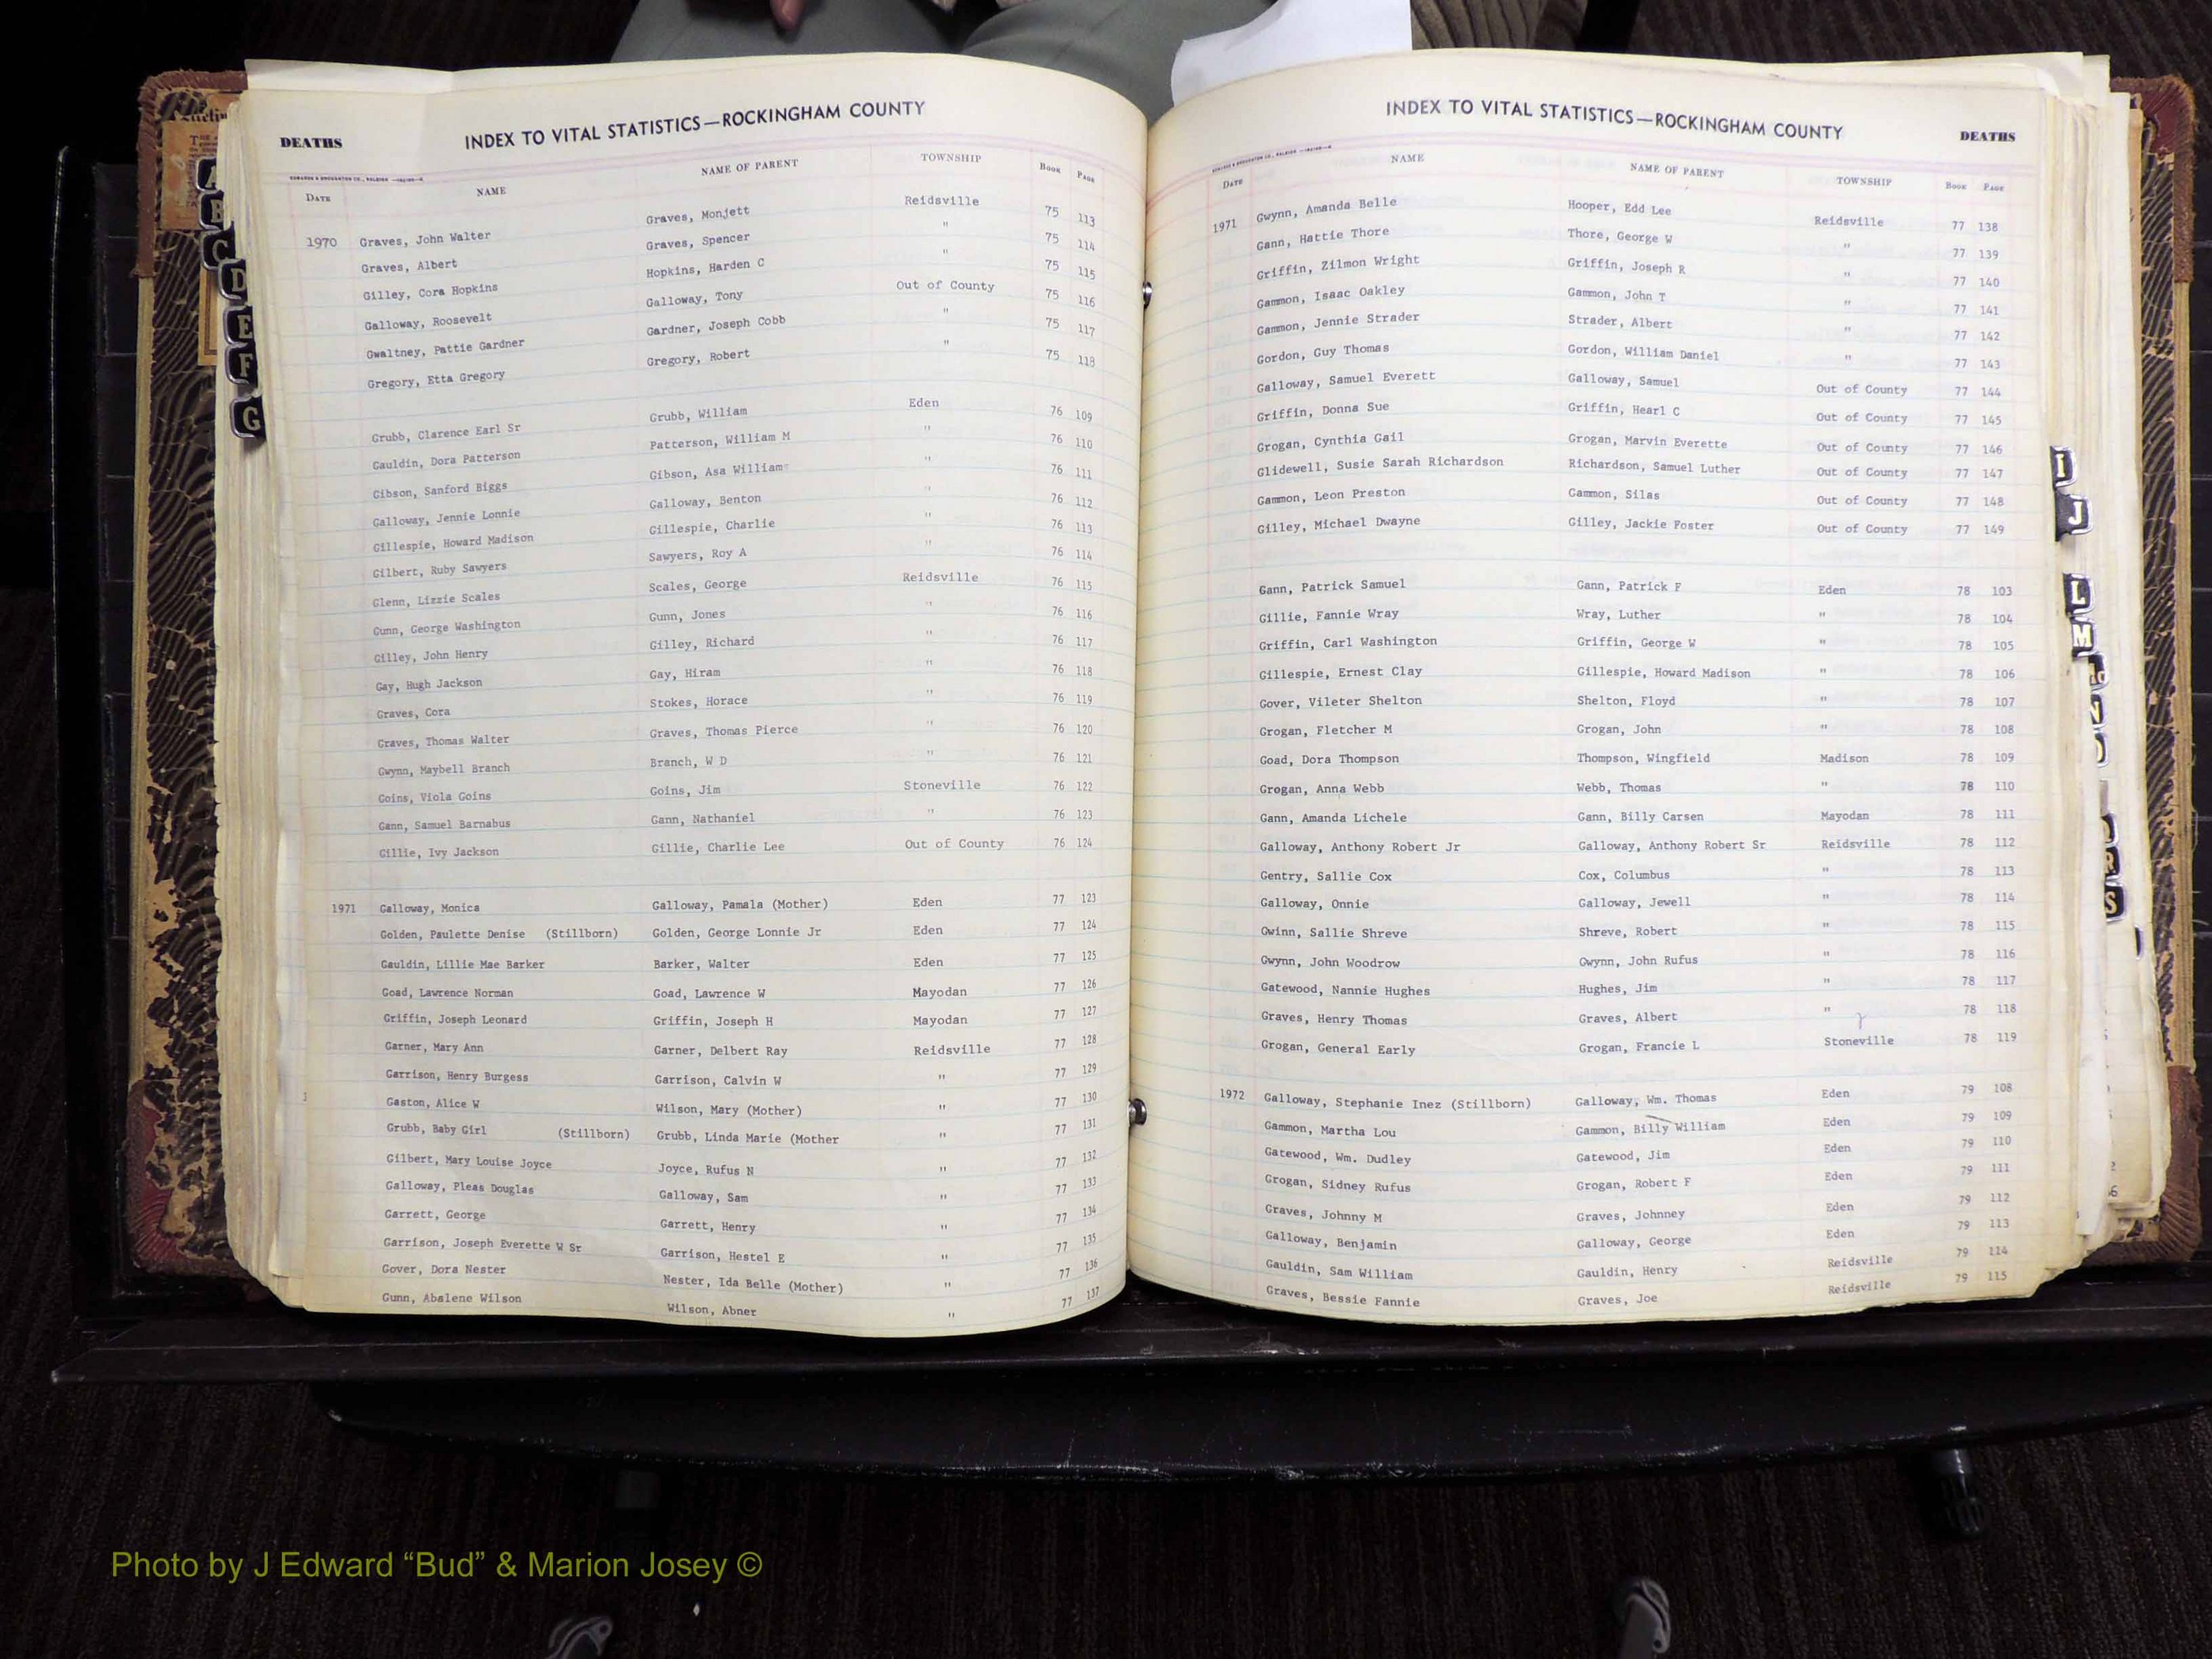 DEATHS
INDEX TO VITAL STATISTICS—ROCKINGHAM COUNTY
DATE NAME NAME OF PARENT TOWNSHIP BOOK PAGE
1970 Graves, John Walter Graves, Monjett Reidsville 75 113
Graves, Albert Graves, Spencer " 75 114
Gilley, Cora Hopkins Hopkins, Harden C " 75 115
Galloway, Roosevelt Galloway, Tony Out of County 75 116
Gwaltney, Pattie Gardner Gardner, Joseph Cobb " 75 117
Gregory, Etta Gregory Gregory, Robert " 75 118
Grubb, Clarence Earl Sr Grubb, William Eden 76 109
Gauldin, Dora Patterson Patterson, William M " 76 110
Gibson, Sanford Biggs Gibson, Asa Williams " 76 111
Galloway, Jennie Lonnie Galloway, Benton " 76 112
Gillespie, Howard Madison Gillespie, Charlie " 76 113
Gilbert, Ruby Sawyers Sawyers, Roy A " 76 114
Glenn, Lizzie Scales Scales, George Reidsville 76 115
Gunn, George Washington Gunn, Jones " 76 116
Gilley, John Henry Gilley, Richard " 76 117
Gay, Hugh Jackson Gay, Hiram " 76 118
Graves, Cora Stokes, Horace " 76 119
Graves, Thomas Walter Graves, Thomas Pierce " 76 120
Gwynn, Maybell Branch Branch, W D " 76 121
Goins, Viola Goins Goins, Jim Stoneville 76 122
Gann, Samuel Barnabus Gann, Nathaniel " 76 123
Gillie, Ivy Jackson Gillie, Charlie Lee Out of County 76 124
1971 Galloway, Monica Galloway, Pamala (Mother) Eden 77 123
Golden, Paulette Denise (Stillborn) Golden, George Lonnie Jr Eden 77 124
Gauldin, Lillie Mae Barker Barker, Walter Eden 77 125
Goad, Lawrence Norman Goad, Lawrence W Mayodan 77 126
Griffin, Joseph Leonard Griffin, Joseph H Mayodan 77 127
Garner, Mary Ann Garner, Delbert Ray Reidsville 77 128
Garrison, Henry Burgess Garrison, Calvin W " 77 129
Gaston, Alice W Wilson, Mary (Mother) " 77 130
Grubb, Baby Girl (Stillborn) Grubb, Linda Marie (Mother " 77 131
Gilbert, Mary Louise Joyce Joyce, Rufus N " 77 132
Galloway, Pleas Douglas Galloway, Sam " 77 133
Garrett, George Garrett, Henry " 77 134
Garrison, Joseph Everette W Sr Garrison, Hestel E " 77 135
Gover, Dora Nester Nester, Ida Belle (Mother) " 77 136
Gunn, Abalene Wilson Wilson, Abner " 77 137
INDEX TO VITAL STATISTICS—ROCKINGHAM COUNTY
DEATHS
DATE NAME NAME OF PARENT TOWNSHIP BOOK PAGE
1971 Gwynn, Amanda Belle Hooper, Edd Lee Reidsville 77 138
Gann, Hattie Thore Thore, George W " 77 139
Griffin, Zilmon Wright Griffin, Joseph R " 77 140
Gammon, Isaac Oakley Gammon, John T " 77 141
Gammon, Jennie Strader Strader, Albert " 77 142
Gordon, Guy Thomas Gordon, William Daniel " 77 143
Galloway, Samuel Everett Galloway, Samuel Out of County 77 144
Griffin, Donna Sue Griffin, Hearl C Out of County 77 145
Grogan, Cynthia Gail Grogan, Marvin Everette Out of County 77 146
Glidewell, Susie Sarah Richardson Richardson, Samuel Luther Out of County 77 147
Gammon, Leon Preston Gammon, Silas Out of County 77 148
Gilley, Michael Dwayne Gilley, Jackie Foster Out of County 77 149
Gann, Patrick Samuel Gann, Patrick F Eden 78 103
Gillie, Fannie Wray Wray, Luther " 78 104
Griffin, Carl Washington Griffin, George W " 78 105
Gillespie, Ernest Clay Gillespie, Howard Madison " 78 106
Gover, Vileter Shelton Shelton, Floyd " 78 107
Grogan, Fletcher M Grogan, John " 78 108
Goad, Dora Thompson Thompson, Wingfield Madison 78 109
Grogan, Anna Webb Webb, Thomas " 78 110
Gann, Amanda Lichele Gann, Billy Carsen Mayodan 78 111
Galloway, Anthony Robert Jr Galloway, Anthony Robert Sr Reidsville 78 112
Gentry, Sallie Cox Cox, Columbus " 78 113
Galloway, Onnie Galloway, Jewell " 78 114
Gwinn, Sallie Shreve Shreve, Robert " 78 115
Gwynn, John Woodrow Gwynn, John Rufus " 78 116
Gatewood, Nannie Hughes Hughes, Jim " 78 117
Graves, Henry Thomas Graves, Albert " 78 118
Grogan, General Early Grogan, Francie L Stoneville 78 119
1972 Galloway, Stephanie Inez (Stillborn) Galloway, Wm. Thomas Eden 79 108
Gammon, Martha Lou Gammon, Billy William Eden 79 109
Gatewood, Wm. Dudley Gatewood, Jim Eden 79 110
Grogan, Sidney Rufus Grogan, Robert F Eden 79 111
Graves, Johnny M Graves, Johnney Eden 79 112
Galloway, Benjamin Galloway, George Eden 79 113
Gauldin, Sam William Gauldin, Henry Reidsville 79 114
Graves, Bessie Fannie Graves, Joe Reidsville 79 115
A
B
C
D
E
F
G
I
J
L
M
N
R
S
Photo by J Edward “Bud” & Marion Josey ©